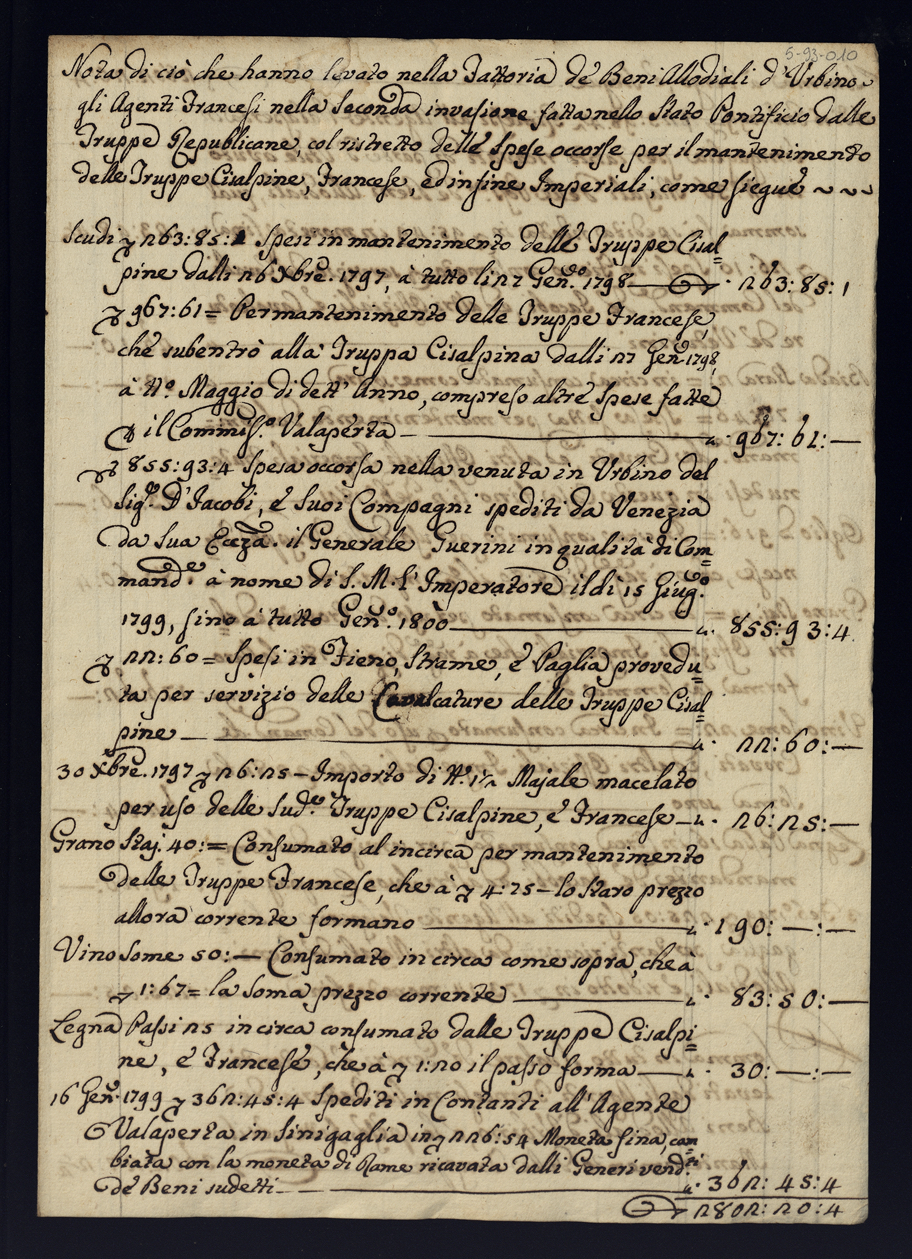 5-93-010
Nota di ciò che hanno levato nella Fattoria de' Beni Allodiali d'Urbino
gli Agenti Francesi nella seconda invasione fatta nello Stato Pontificio dalle
Truppe Republicane, col ristretto delle spese occorse per il mantenimento
delle Truppe Cisalpine, Francese, ed in fine Imperiali, come siegue ~ ~ ~
Scudi ∇ 263:85:1 Spesi in mantenimento delle Truppe Cisal=
pine dalli 26 Xbre. 1797, à tutto li 27 Gen.º 1798 — 263:85:1
∇ 967:61= Per mantenimento delle Truppe Francese,
che subentrò alla Truppa Cisalpina dalli 27 Gen. 1798,
à tt.º Maggio di dett'Anno, compreso altre spese fatte
il Commiss.º Valaperta — „. 967:61:—
∇ 855:93:4 Spesa occorsa nella venuta in Urbino del
Sig.r D'Jacobi, e Suoi Compagni spediti da Venezia
da Sua Eccza. il Generale Guerini in qualità di Com=
mand.e à nome di S. M. l'Imperatore il dì 15 Giug.º
1799, fino à tutto Gen.º 1800 — „. 855:93:4
∇ 22:60= Spesi in Fieno, Strame, e Paglia provedu=
ta per servizio delle Cavalcature delle Truppe Cisal=
pine — „. 22:60:—
30 Xbre. 1797 ∇ 26:25— Importo di N.º 1½ Majale macelato
per uso delle Sud.e Truppe Cisalpine, e Francese — „. 26:25:—
Grano Staj. 40:= Consumato al incirca per mantenimento
delle Truppe Francese, che à ∇ 4:75— lo staro prezzo
allora corrente formano — „. 190:—:—
Vino some 50:— Consumato in circa come sopra, che à
∇ 1:67= la soma prezzo corrente — „. 83:50:—
Legna Passi 25 in circa consumato dalle Truppe Cisalpi=
ne, e Francese, che à ∇ 1:20 il passo forma — „. 30:—:—
16 Gen. 1799 ∇ 362:45:4 Spediti in Contanti all'Agente
Valaperta in Sinigaglia in ∇ 226:54 Moneta fina, cam=
biata con la moneta di Rame ricavata dalli Generi vend.ti
de' Beni sudetti — „. 362:45:4
2802:20:4